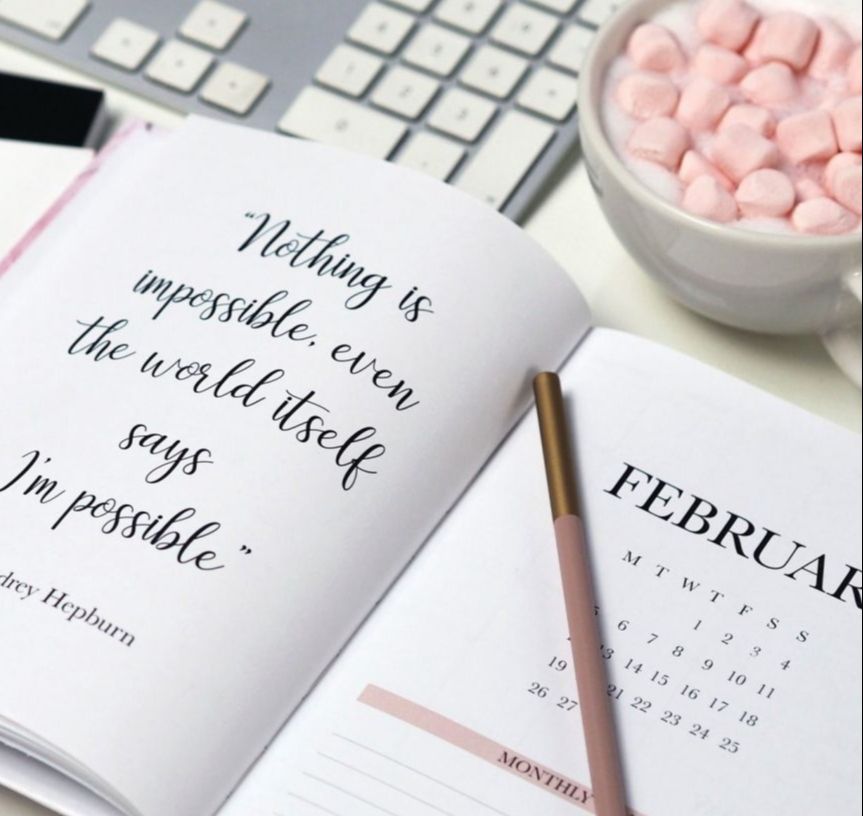 “Nothing is
impossible, even
the world itself
says
I'm possible”
drey Hepburn
FEBRUAR
M T W T F S S
1 2 3 4
5 6 7 8 9 10 11
13 14 15 16 17 18
19 21 22 23 24 25
26 27
MONTHLY